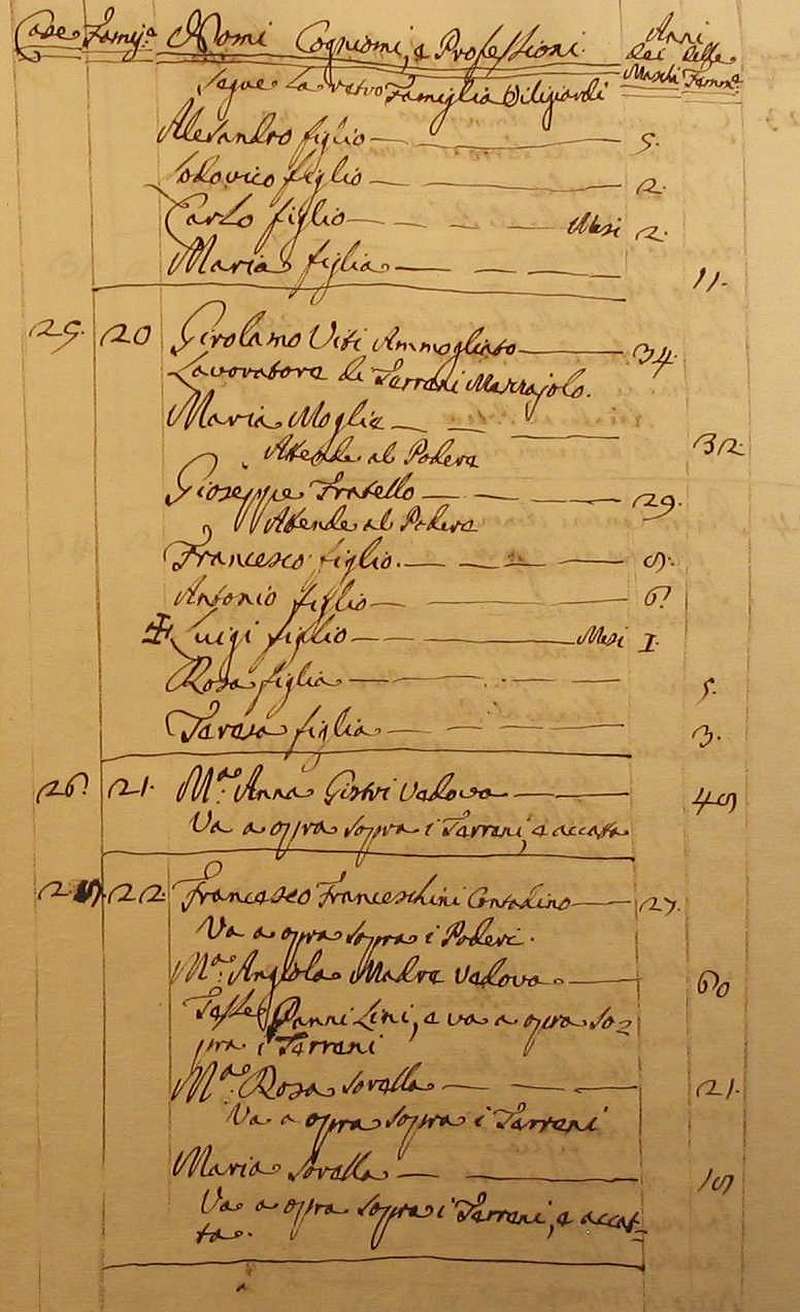 Case Famig.a Nomi Cognomi, e Professioni Anni
dei delle
Maschi Femm.e
Segue la retro Famiglia Diligiardi
Alesandro figlio 5.
Lodovico figlio 2.
Carlo figlio Mesi 2.
Maria figlia 11.
25. 20 Girolamo Viti Ammogliato 34.
Lavoratore di Terreni Mezzajolo.
Maria Moglie 32
Attende al Podere
Giuseppe Fratello 29.
Attende al Podere
Francesco figlio. 9.
Antonio figlio 6
Luigi figlio Mesi 1.
Rosa figlia 5.
Teresa figlia 3.
26 21. M.a Anna Vedova 49
Va a opra sopra i Terreni, e accatta
22. Francesco Franceschini Contadino 27.
Va a opra sopra i Poderi.
M.a Angiola Madre Vedova 60
Tesse Panni Lini, e va a opra so=
pra i Terreni
M.a Rosa Sorella 21.
Va a opra sopra i Terreni
Maria Sorella 19
Va a opra sopra i Terreni, e accat=
ta.